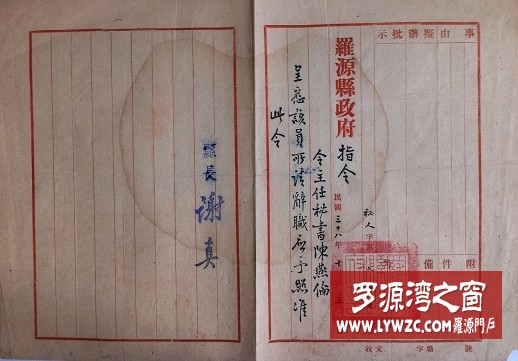 事由擬辦批示
附件備考
收文字第號
羅源縣政府
指令
秘人字第
民國三十八年十
令主任秘書陳燕倫
呈悉該員所請辭職應予照准
此令
縣長
謝真
罗源湾之窗
WWW.LYWZC.COM
羅源門戶